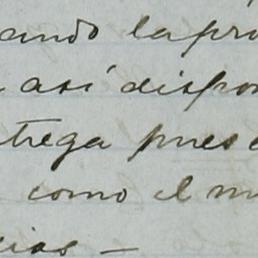 ando la pro
así dispon
trega pues
como el m
cias —